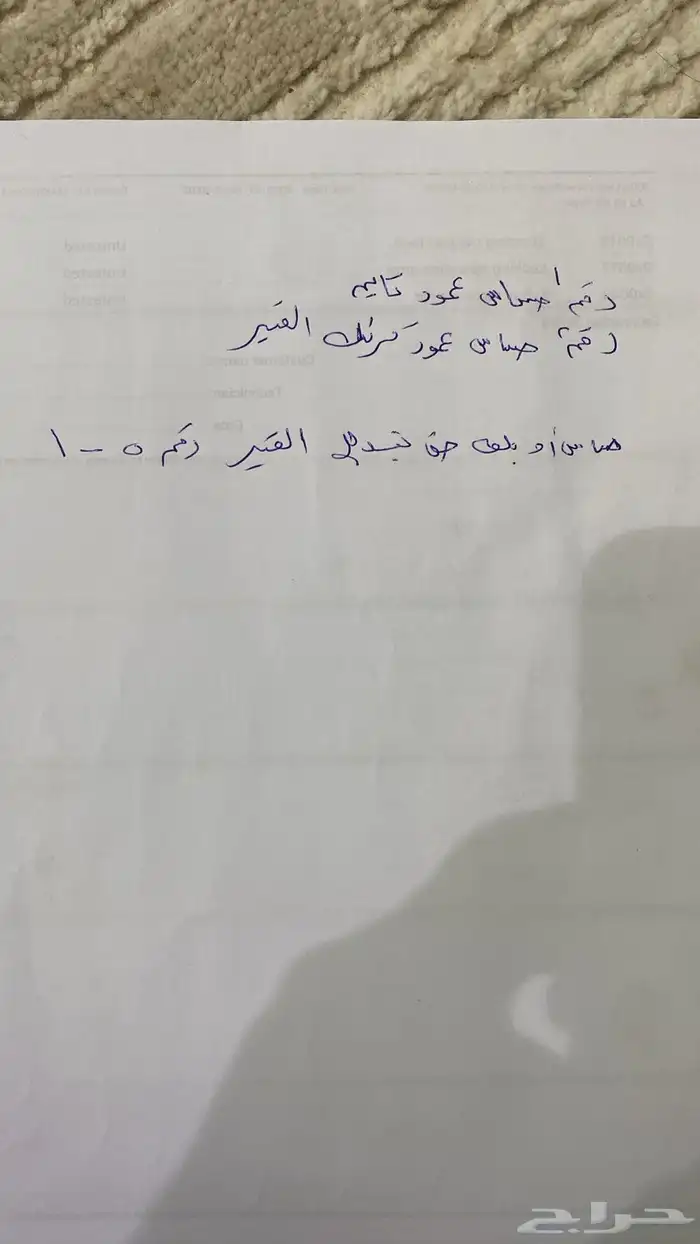 رقم ١ حساس عمود تايم
رقم ٢ حساس عمود كرنك القير
حساس أو بلف حق تبديل القير رقم ٥ - ١
حراج